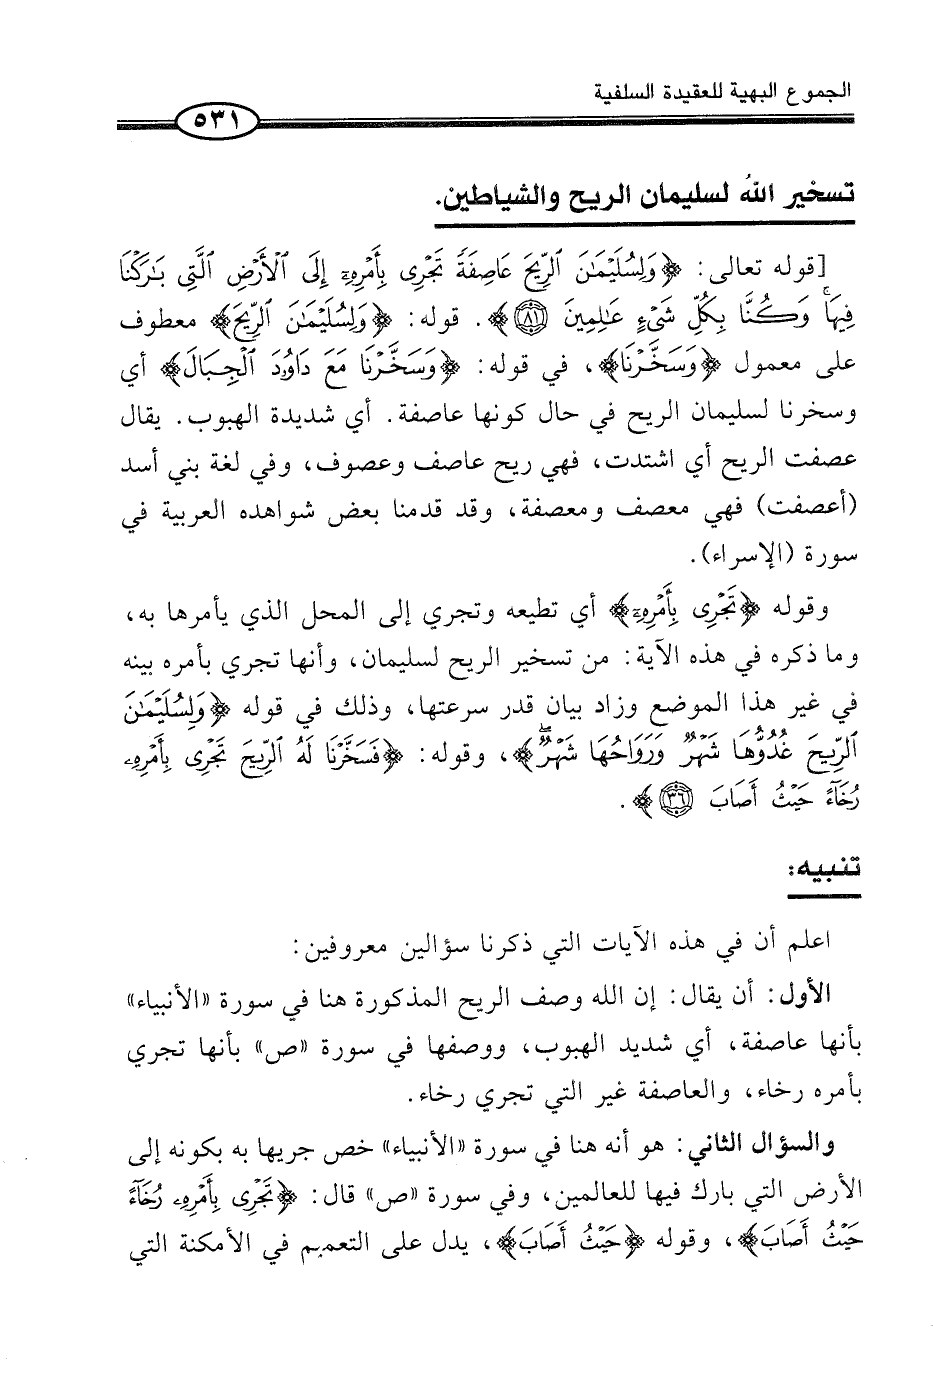 الجموع البهية للعقيدة السلفية
٥٣١
تسخير اللهُ لسليمان الريح والشياطين.
[قوله تعالى: ﴿وَلِسُلَيْمَٰنَ ٱلرِّيحَ عَاصِفَةً تَجْرِى بِأَمْرِهِۦٓ إِلَى ٱلْأَرْضِ ٱلَّتِى بَٰرَكْنَا
فِيهَاۚ وَكُنَّا بِكُلِّ شَىْءٍ عَٰلِمِينَ ٨١﴾. قوله: ﴿وَلِسُلَيْمَٰنَ ٱلرِّيحَ﴾ معطوف
على معمول ﴿وَسَخَّرْنَا﴾، في قوله: ﴿وَسَخَّرْنَا مَعَ دَاوُۥدَ ٱلْجِبَالَ﴾ أي
وسخرنا لسليمان الريح في حال كونها عاصفة. أي شديدة الهبوب. يقال
عصفت الريح أي اشتدت، فهي ريح عاصف وعصوف، وفي لغة بني أسد
(أعصفت) فهي معصف ومعصفة، وقد قدمنا بعض شواهده العربية في
سورة (الإسراء).
وقوله ﴿تَجْرِى بِأَمْرِهِۦٓ﴾ أي تطيعه وتجري إلى المحل الذي يأمرها به،
وما ذكره في هذه الآية: من تسخير الريح لسليمان، وأنها تجري بأمره بينه
في غير هذا الموضع وزاد بيان قدر سرعتها، وذلك في قوله ﴿وَلِسُلَيْمَٰنَ
ٱلرِّيحَ غُدُوُّهَا شَهْرٌ وَرَوَاحُهَا شَهْرٌۖ﴾، وقوله: ﴿فَسَخَّرْنَا لَهُ ٱلرِّيحَ تَجْرِى بِأَمْرِهِۦ
رُخَآءً حَيْثُ أَصَابَ ٣٦﴾.
تنبيه:
اعلم أن في هذه الآيات التي ذكرنا سؤالين معروفين:
الأول: أن يقال: إن الله وصف الريح المذكورة هنا في سورة «الأنبياء»
بأنها عاصفة، أي شديد الهبوب، ووصفها في سورة «ص» بأنها تجري
بأمره رخاء، والعاصفة غير التي تجري رخاء.
والسؤال الثاني: هو أنه هنا في سورة «الأنبياء» خص جريها به بكونه إلى
الأرض التي بارك فيها للعالمين، وفي سورة «ص» قال: ﴿تَجْرِى بِأَمْرِهِۦ رُخَآءً
حَيْثُ أَصَابَ﴾، وقوله ﴿حَيْثُ أَصَابَ﴾، يدل على التعميم في الأمكنة التي